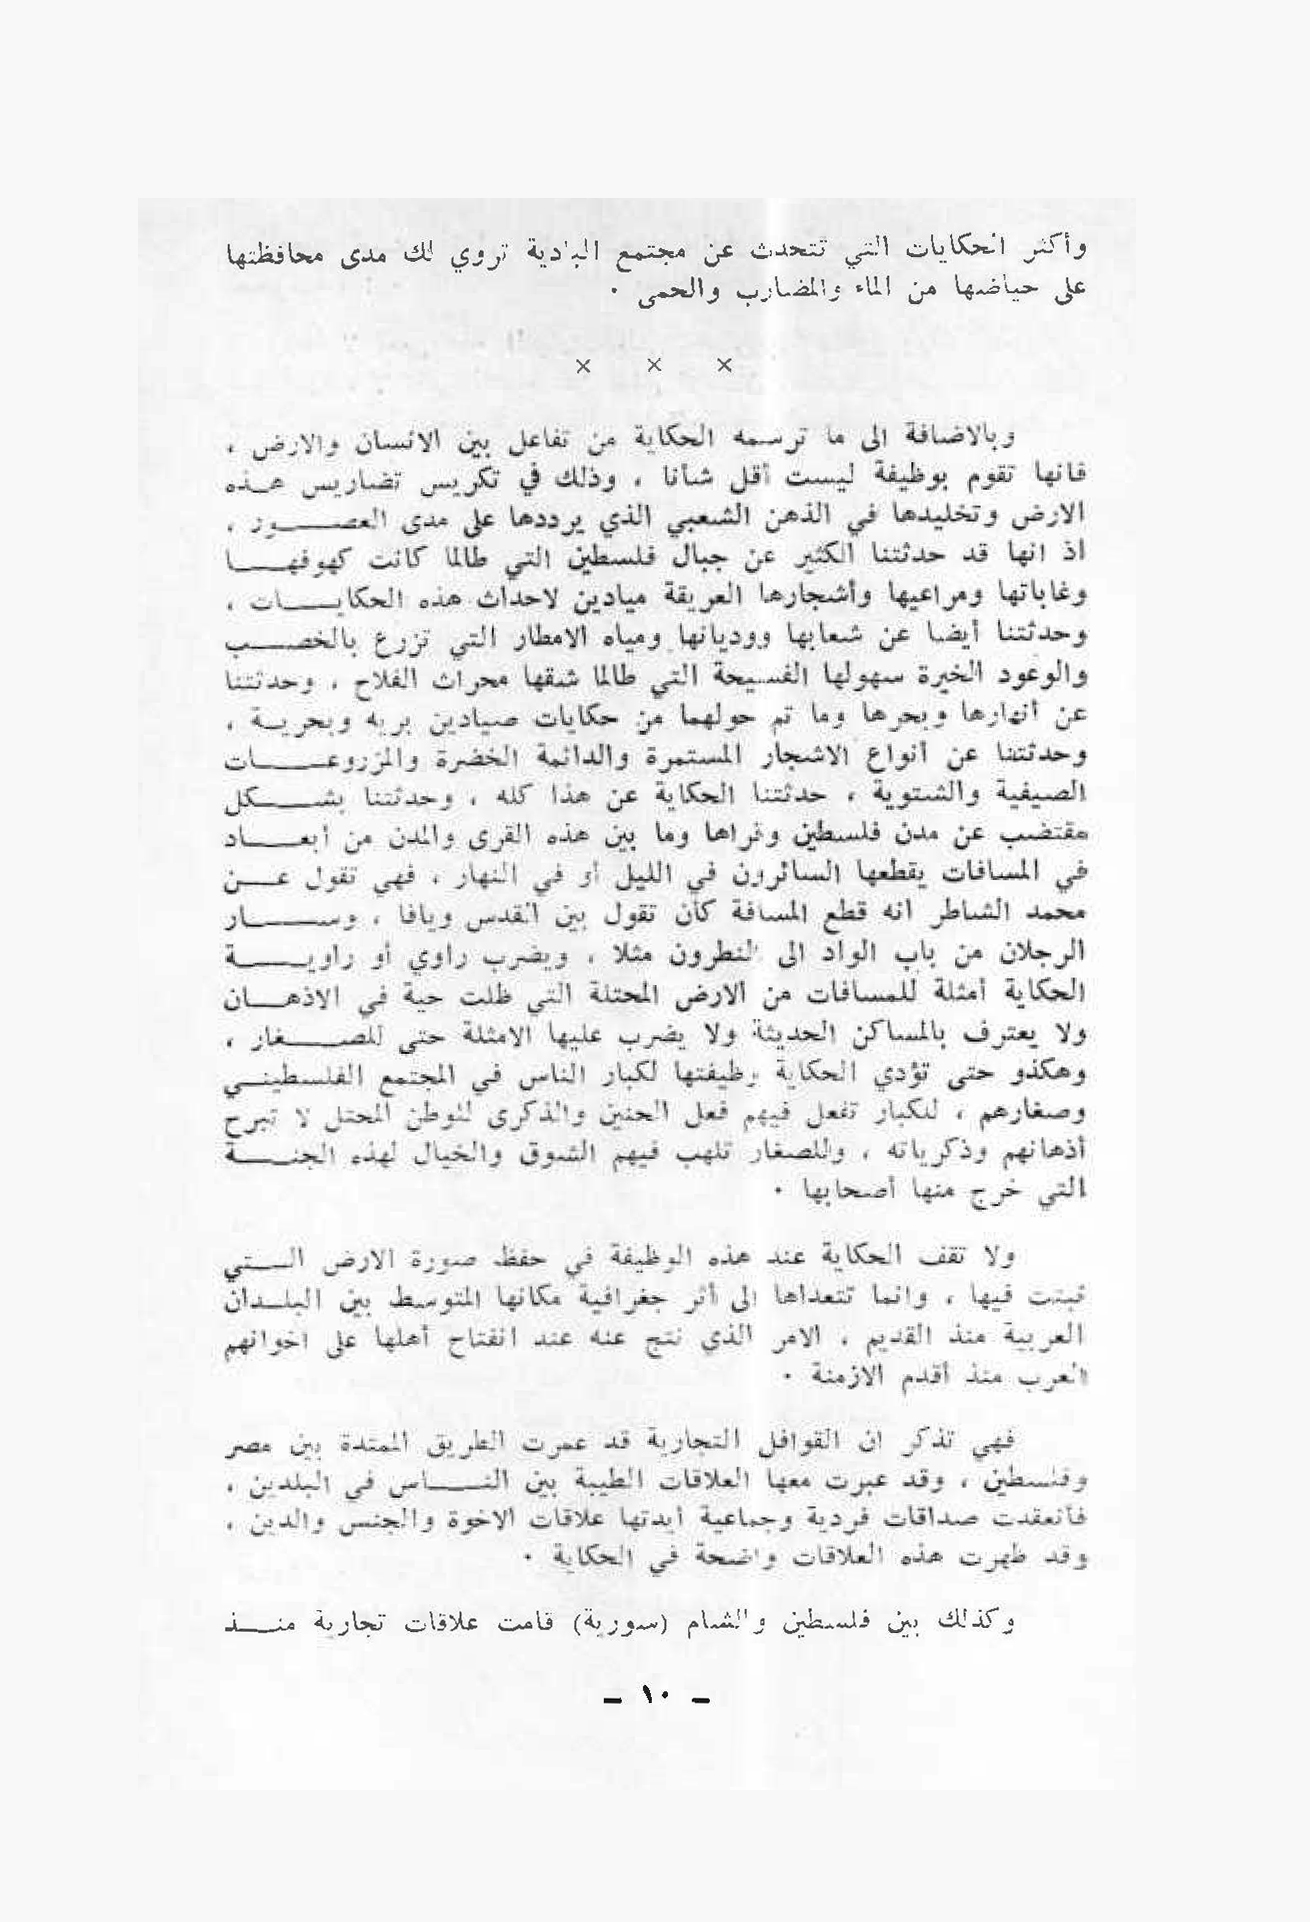 وأكثر الحكايات التي تتحدث عن مجتمع البادية تروي لك مدى محافظتها
على حياضها من الماء والمضارب والحمى ٠
× × ×
وبالاضافة الى ما ترسمه الحكاية من تفاعل بين الانسان والارض ،
فانها تقوم بوظيفة ليست أقل شأنا ، وذلك في تكريس تضاريس هـذه
الارض وتخليدها في الذهن الشعبي الذي يرددها على مدى العصـــور ،
اذ انها قد حدثتنا الكثير عن جبال فلسطين التي طالما كانت كهوفهـــا
وغاباتها ومراعيها وأشجارها العريقة ميادين لاحداث هذه الحكايـــات ،
وحدثتنا أيضا عن شعابها ووديانها ومياه الامطار التي تزرع بالخصـــب
والوعود الخيرة سهولها الفسيحة التي طالما شقها محراث الفلاح ، وحدثتنا
عن أنهارها وبحرها وما تم حولهما من حكايات صيادين بريه وبحريـة ،
وحدثتنا عن أنواع الاشجار المستمرة والدائمة الخضرة والمزروعـــات
الصيفية والشتوية ، حدثتنا الحكاية عن هذا كله ، وحدثتنا بشـــكل
مقتضب عن مدن فلسطين وقراها وما بين هذه القرى والمدن من أبعـــاد
في المسافات يقطعها السائرون في الليل أو في النهار ، فهي تقول عـــن
محمد الشاطر انه قطع المسافة كأن تقول بين القدس ويافا ، وســـار
الرجلان من باب الواد الى النطرون مثلا ، ويضرب راوي أو راويـــة
الحكاية أمثلة للمسافات من الارض المحتلة التي ظلت حية في الاذهـــان
ولا يعترف بالمساكن الحديثة ولا يضرب عليها الامثلة حتى للصـــغار ،
وهكذو حتى تؤدي الحكاية وظيفتها لكبار الناس في المجتمع الفلسطينـي
وصغارهم ، للكبار تفعل فيهم فعل الحنين والذكرى للوطن المحتل لا تبرح
أذهانهم وذكرياته ، وللصغار تلهب فيهم الشوق والخيال لهذه الجنـــة
التي خرج منها أصحابها ٠
ولا تقف الحكاية عند هذه الوظيفة في حفظ صورة الارض الـــتي
نبتت فيها ، وانما تتعداها الى أثر جغرافية مكانها المتوسط بين البلـدان
العربية منذ القديم ، الامر الذي نتج عنه عند انفتاح أهلها على اخوانهم
العرب منذ أقدم الازمنة ٠
فهي تذكر ان القوافل التجارية قد عمرت الطريق الممتدة بين مصر
وفلسطين ، وقد عبرت معها العلاقات الطيبة بين النـــاس في البلدين ،
فانعقدت صداقات فردية وجماعية أيدتها علاقات الاخوة والجنس والدين ،
وقد ظهرت هذه العلاقات واضحة في الحكاية ٠
وكذلك بين فلسطين والشام (سورية) قامت علاقات تجارية منـــذ
– ١٠ –